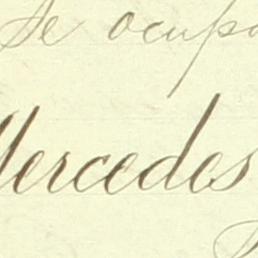 Se ocupa
Mercedes